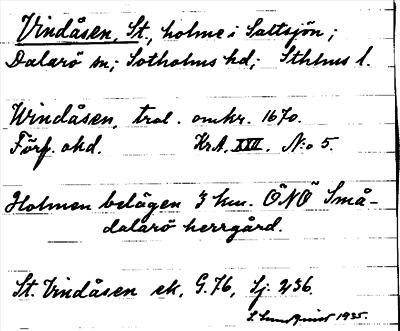 Vindåsen, St., holme i Saltsjön;
Dalarö sn; Sotholms hd; Sthlms l.
Windåsen, trol. omkr. 1670.
Förf. okd. KrA. XXII. N:o 5.
Holmen belägen 3 km. ÖNÖ Små-
dalarö herrgård.
St. Vindåsen ek, G.76, Sj. 236.
S. Sundquist 1935.